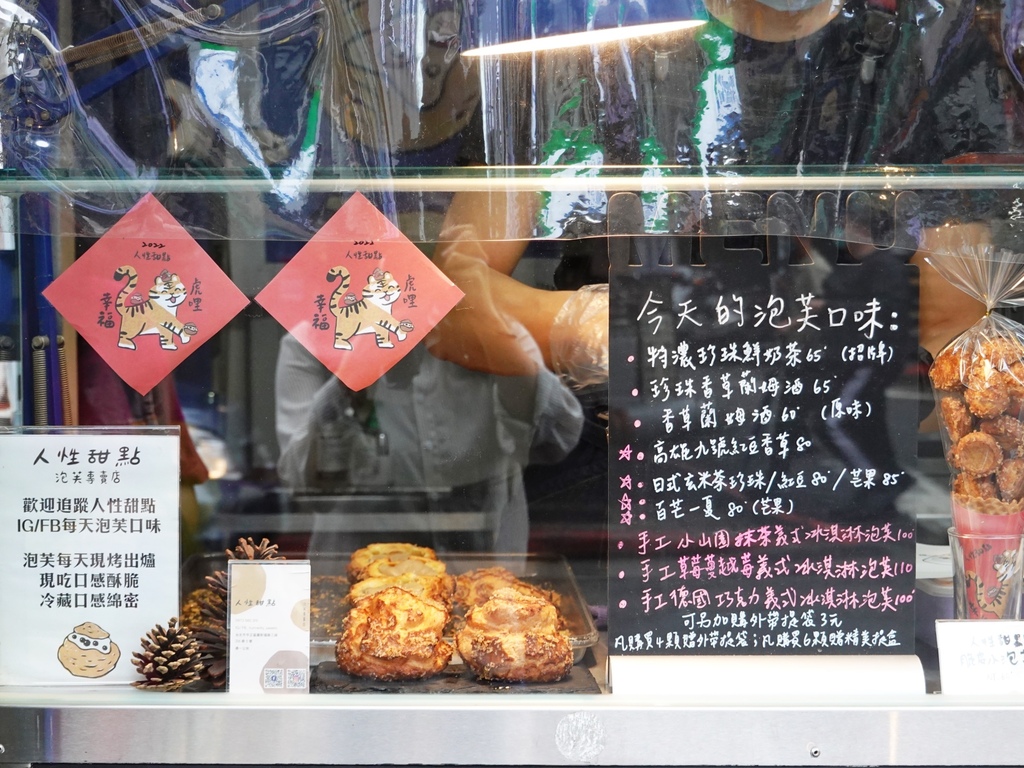 2022
人性甜點
虎哩
幸福
2022
人性甜點
虎哩
幸福
人性甜點
泡芙專賣店
歡迎追蹤人性甜點
IG/FB每天泡芙口味
泡芙每天現烤出爐
現吃口感酥脆
冷藏口感綿密
人性甜點
MENU
今天的泡芙口味:
特濃珍珠鮮奶茶65 (招牌)
珍珠香草蘭姆酒 65
香草蘭姆酒 60 (原味)
高雄九號紅豆香草 80
日式玄米茶珍珠/紅豆80/芒果85
百芒一夏 80 (芒果)
手工小山園抹茶義式冰淇淋泡芙100
手工草莓蔓越莓義式冰淇淋泡芙110
手工德國巧克力義式冰淇淋泡芙100
可另加購外帶提袋3元
凡購買4顆贈外帶提袋;凡購買6顆贈精美提盒